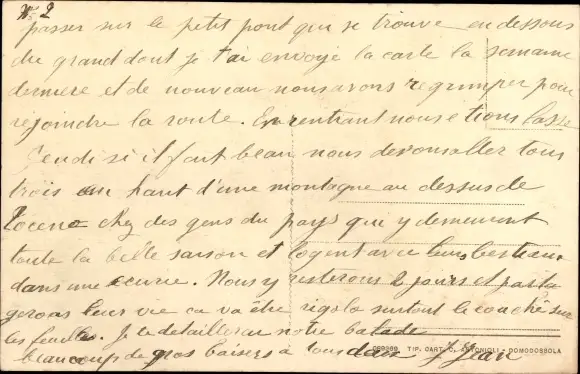 N° 2
passer sur le petit pont qui se trouve en dessous
du grand dont je t'ai envoyé la carte la semaine
derniere et de nouveau nous avons regrimper pour
rejoindre la route. En rentrant nous etions lasse
Jeudi si il fait beau nous devons aller tous
trois au haut d'une montagne au dessus de
chez des gens du pays qui y demeurent
toute la belle saison et logent avec leurs bestiaux
dans une ecurie. Nous y resterons 2 jours et parta
gerons leur vie ca va être rigolo surtout le couché sur
les feuilles. Je te detaillerai notre balade
beaucoup de gros baisers a tous deux Jean
TIP. CART. C. ANTONIOLI - DOMODOSSOLA